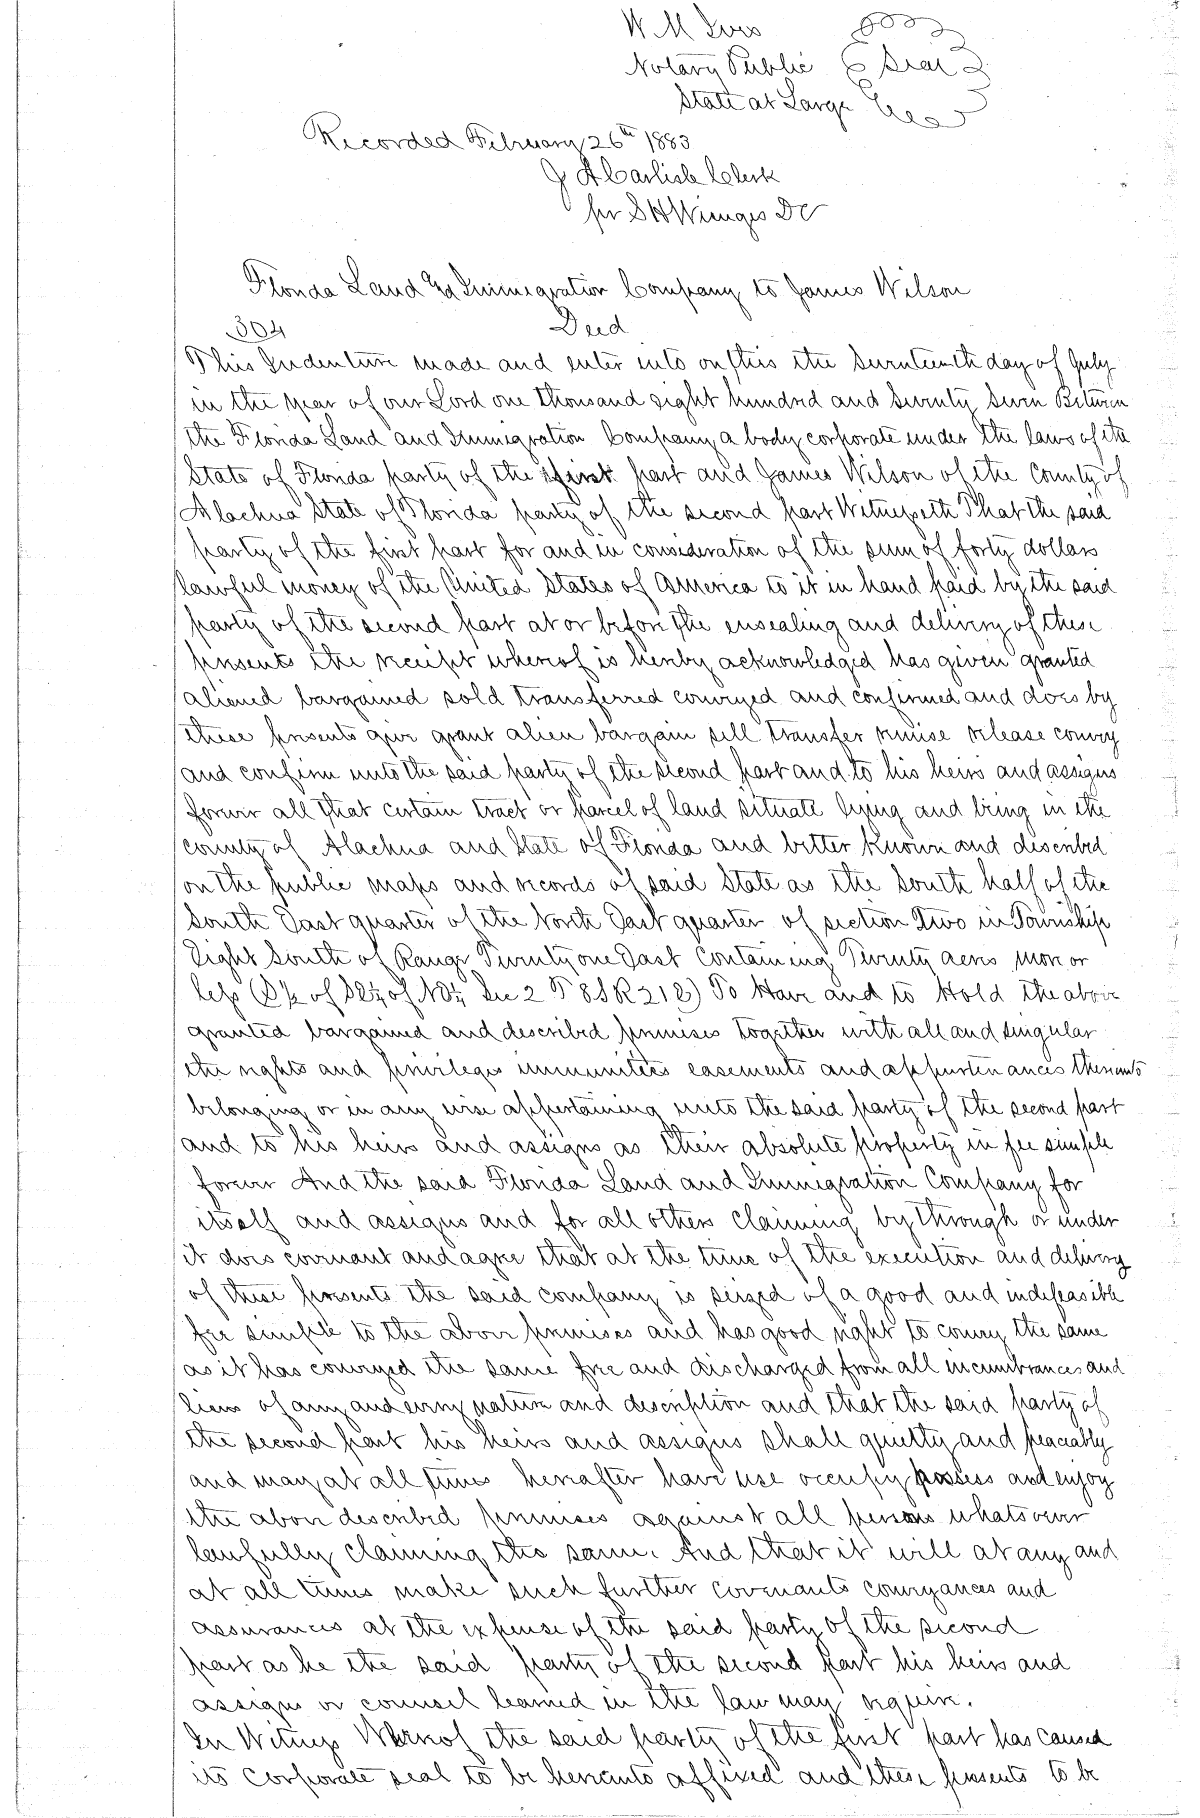 W M Ives
Notary Public Seal
State at Large
Recorded February 26th 1883
J A Carlisle Clerk
per S H Wienges DC
Florida Land & Immigration Company to James Wilson
304 Deed
This Indenture made and enter into on this the Seventeenth day of July
in the year of our Lord one thousand eight hundred and Seventy Seven Between
the Florida Land and Immigration Company a body corporate under the laws of the
State of Florida party of the first part and James Wilson of the County of
Alachua State of Florida party of the second part Witnesseth That the said
party of the first part for and in consideration of the sum of forty dollars
lawful money of the United States of America to it in hand paid by the said
party of the second part at or before the ensealing and delivery of these
presents the receipt whereof is hereby acknowledged has given granted
aliened bargained sold transferred conveyed and confirmed and does by
these presents give grant alien bargain sell transfer remise release convey
and confirm unto the said party of the second part and to his heirs and assigns
forever all that certain tract or parcel of land situate lying and being in the
county of Alachua and State of Florida and better known and described
on the public maps and records of said State as the South half of the
South East quarter of the North East quarter of section Two in Township
Eight South of Range Twenty one East Containing Twenty acres more or
less (S½ of SE¼ of NE¼ Sec 2 T8S R21E) To Have and to Hold the above
granted bargained and described premises together with all and singular
the rights and privileges immunities easements and appurtenances thereunto
belonging or in any wise appertaining unto the said party of the second part
and to his heirs and assigns as their absolute property in fee simple
forever And the said Florida Land and Immigration Company for
itself and assigns and for all others claiming by through or under
it does covenant and agree that at the time of the execution and delivery
of these presents the said company is seized of a good and indefeasible
fee simple to the above premises and has good right to convey the same
as it has conveyed the same free and discharged from all incumbrances and
liens of any and every nature and description and that the said party of
the second part his heirs and assigns shall quietly and peaceably
and may at all times hereafter have use occupy possess and enjoy
the above described premises against all persons whatsoever
lawfully claiming the same. And that it will at any and
at all times make such further covenants conveyances and
assurances at the expense of the said party of the second
part as he the said party of the second part his heirs and
assigns or counsel learned in the law may require.
In Witness Whereof the said party of the first part has caused
its corporate seal to be hereunto affixed and these presents to be